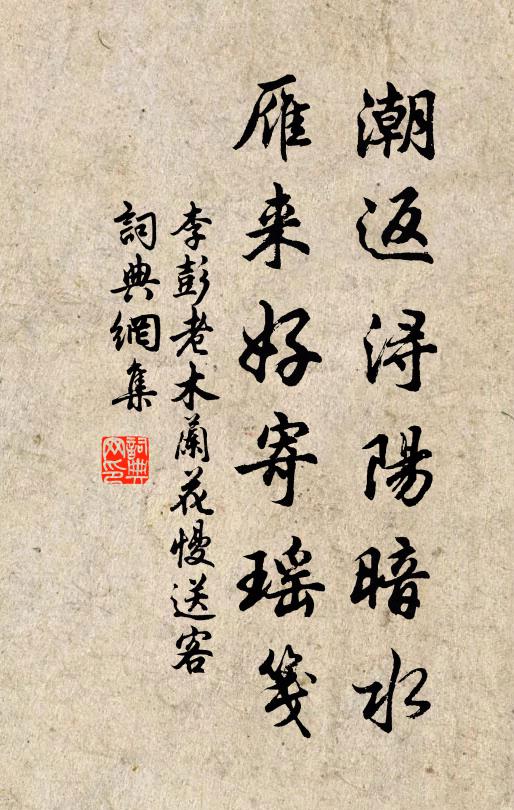 潮返浔陽暗水
雁来好寄瑶箋
李彭老木蘭花慢送客
詞典網集
詞典
网印